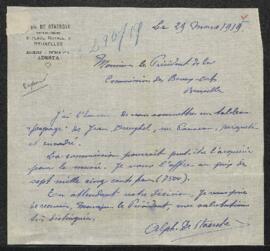 Le 29 Mars 1919
PLACE ROYALE
BRUXELLES
Monsieur le Président de la
Commission des Beaux-Arts
Bruxelles
J'ai l'honneur de vous soumettre un tableau
"paysage" de Jean Breughel, sur panneau, parqueté
et encadré.
La commission pourrait peut-être l'acquérir
pour le musée. Je vous l'offre au prix de
sept mille cinq cents frs (7500).
En attendant votre décision, je vous prie
Monsieur le Président, mes salutations
très distinguées.
Alph.